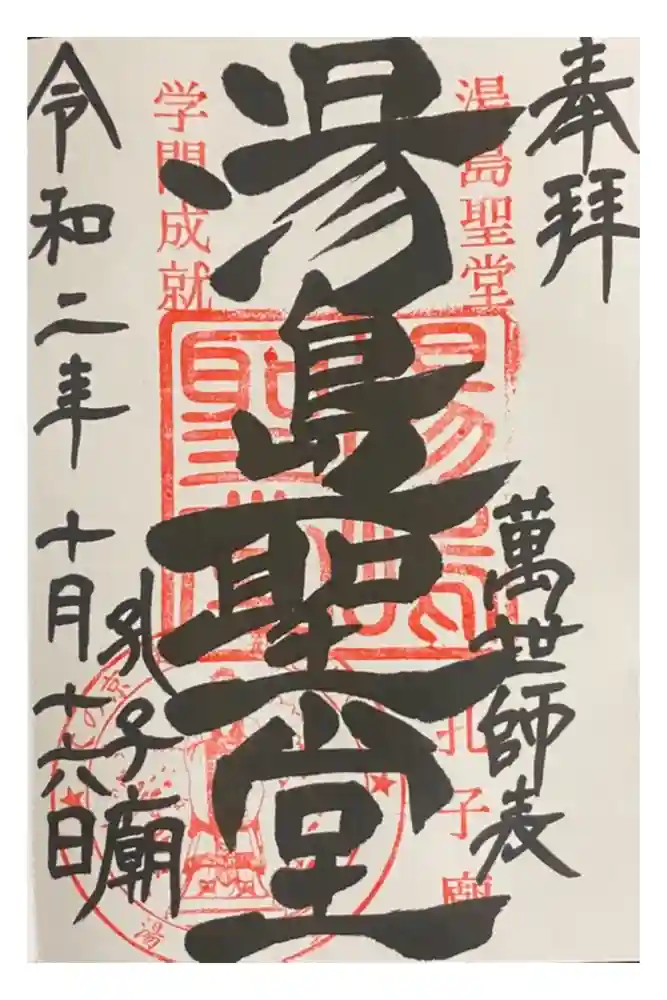 奉拝
萬世師表
湯島聖堂
孔子廟
湯島聖堂
学問成就
湯島聖堂
孔子廟
令和二年十月十六日
湯